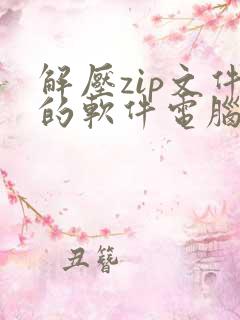 解壓zip文件
的軟件電腦
丑簪